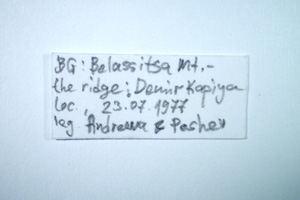 BG: Belassitsa Mt.-
the ridge: Demir Kapiya
loc., 23.07.1977
leg Andreeva & Pashev